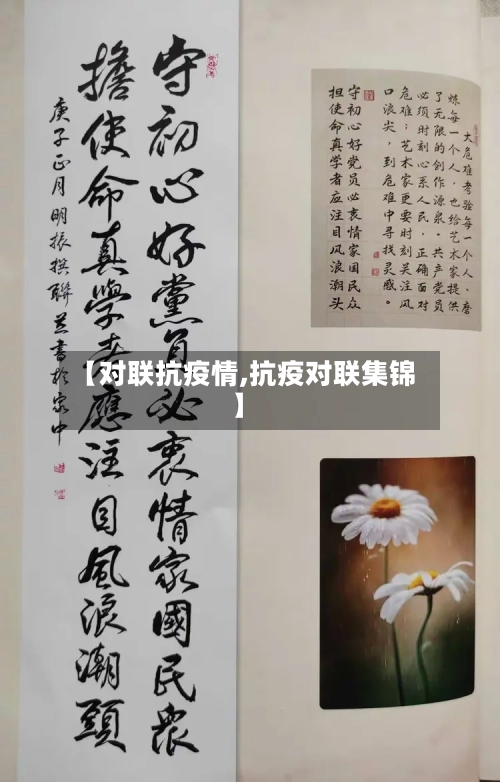 守初心好黨員必衷情家國民眾
擔使命真學者應注目風浪潮頭
庚子正月明振撰聯並書於家中
大危难考验每一个人、磨
炼每一个人，也给艺术家提供
了无限的创作源泉。共产党员
必须时刻心系人民，正确面对
危难；艺术家更要时刻关注风
口浪尖，到危难中寻找灵感。
守初心好党员必衷情家国民众
担使命真学者应注目风浪潮头
【对联抗疫情,抗疫对联集锦
】